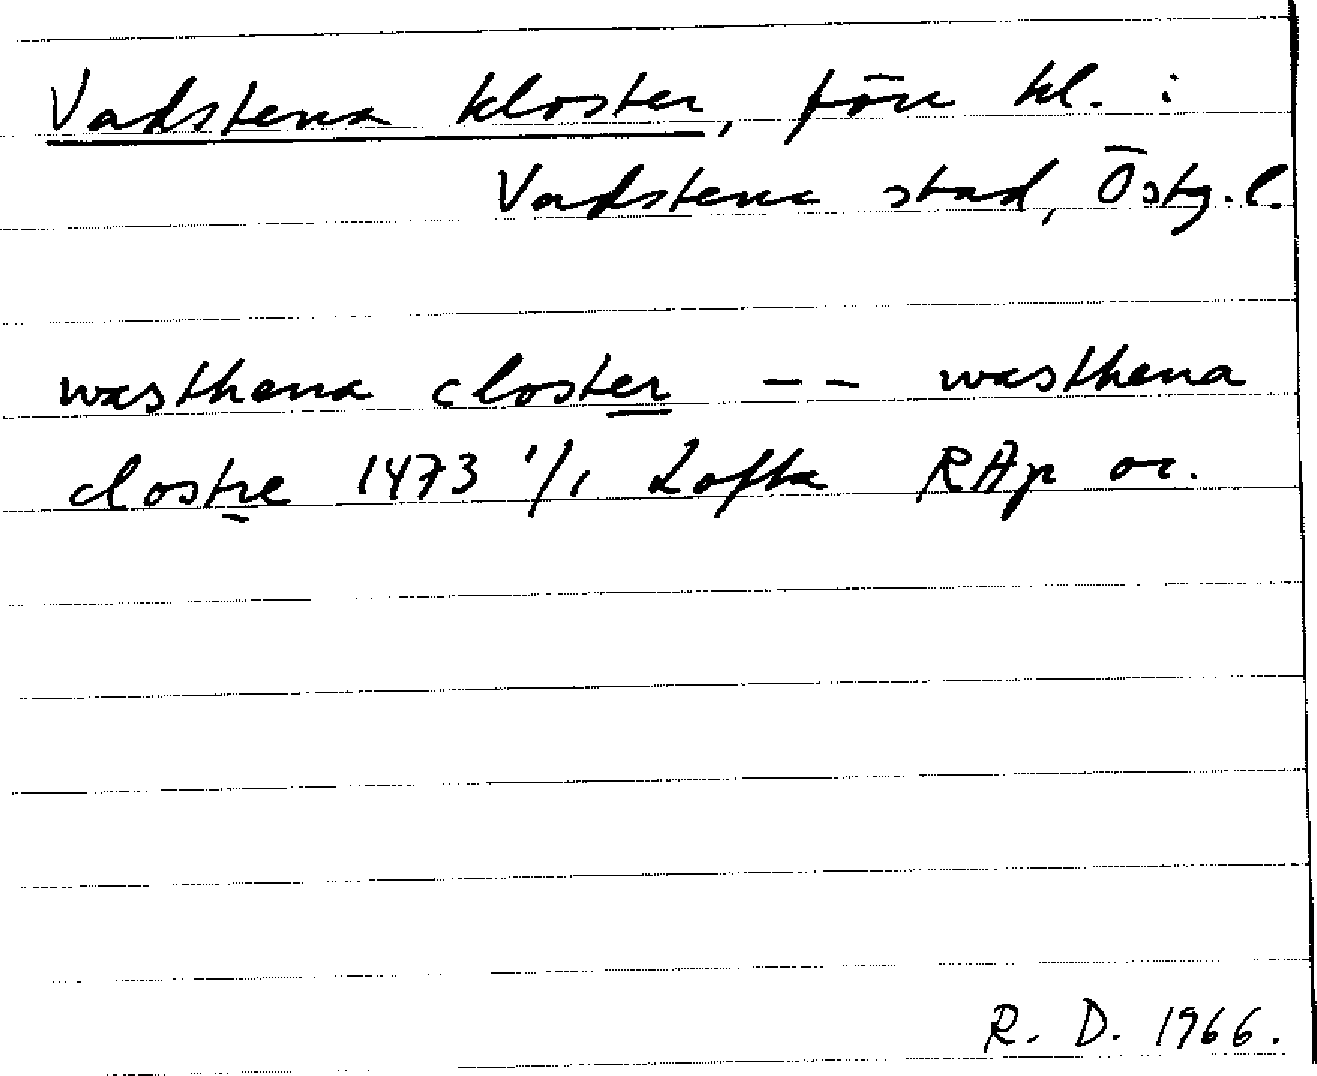 Vadstena kloster, förr kl. i
Vadstena stad, Östg.l.
wasthena closter -- wasthena
clostre 1473 1/1 Lofta RAp or.
R. D. 1966.